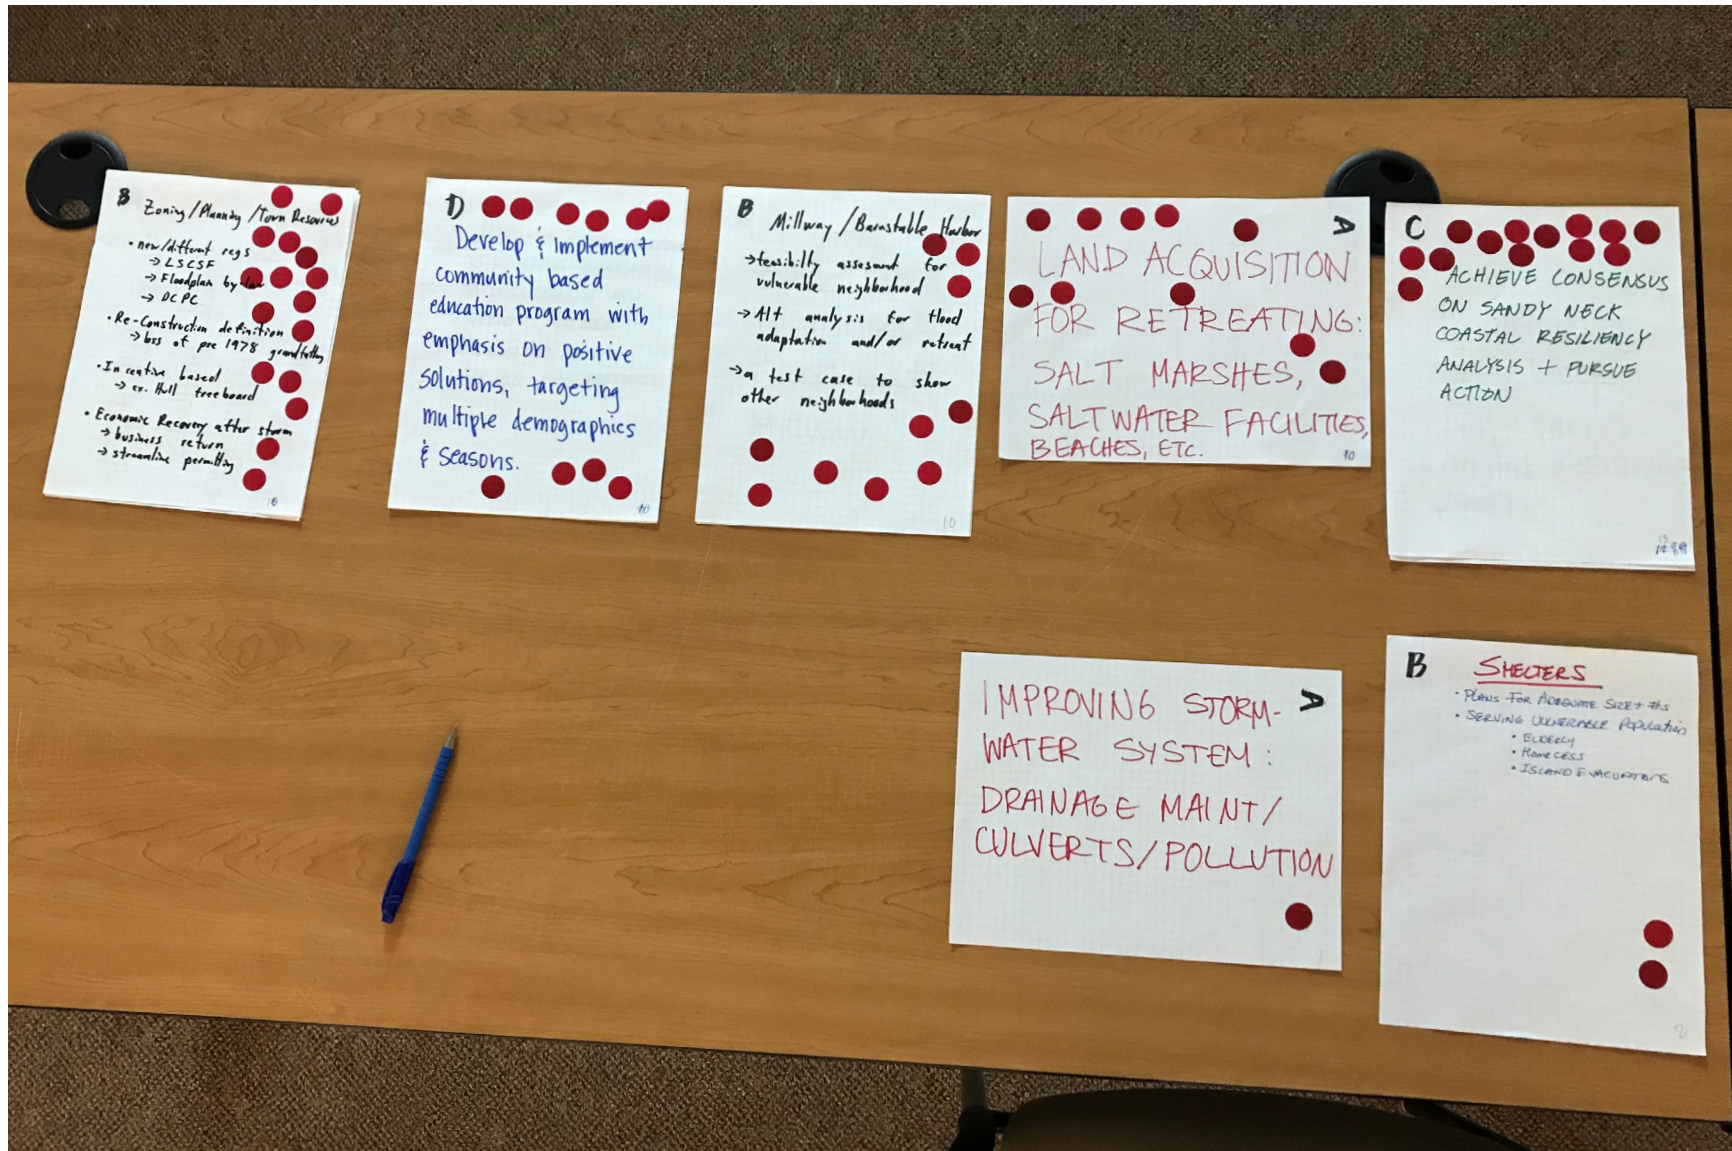 B
Zoning/Planning/Town Resources
• new/different regs
→ LSCSF
→ Floodplan by-law
→ DCPC
• Re-Construction definition
→ loss of pre 1978 grandfathg
• Incentive based
→ ex. Hull freeboard
• Economic Recovery after storm
→ business return
→ streamline permitting
D
Develop & Implement
community based
education program with
emphasis on positive
solutions, targeting
multiple demographics
& seasons.
10
B
Millway/Barnstable Harbor
→ feasibilty assesment for
vulnerable neighborhood
→ Alt analysis for flood
adaptation and/or retreat
→ a test case to show
other neighborhoods
10
A
LAND ACQUISITION
FOR RETREATING:
SALT MARSHES,
SALTWATER FACILITIES,
BEACHES, ETC.
10
C
ACHIEVE CONSENSUS
ON SANDY NECK
COASTAL RESILIENCY
ANALYSIS + PURSUE
ACTION
13
A
IMPROVING STORM-
WATER SYSTEM:
DRAINAGE MAINT/
CULVERTS/POLLUTION
1
B
SHELTERS
• PLANS FOR ADEQUATE SIZE + #s
• SERVING VULNERABLE POPULATION
• ELDERLY
• HOMELESS
• ISLAND EVACUATIONS
2